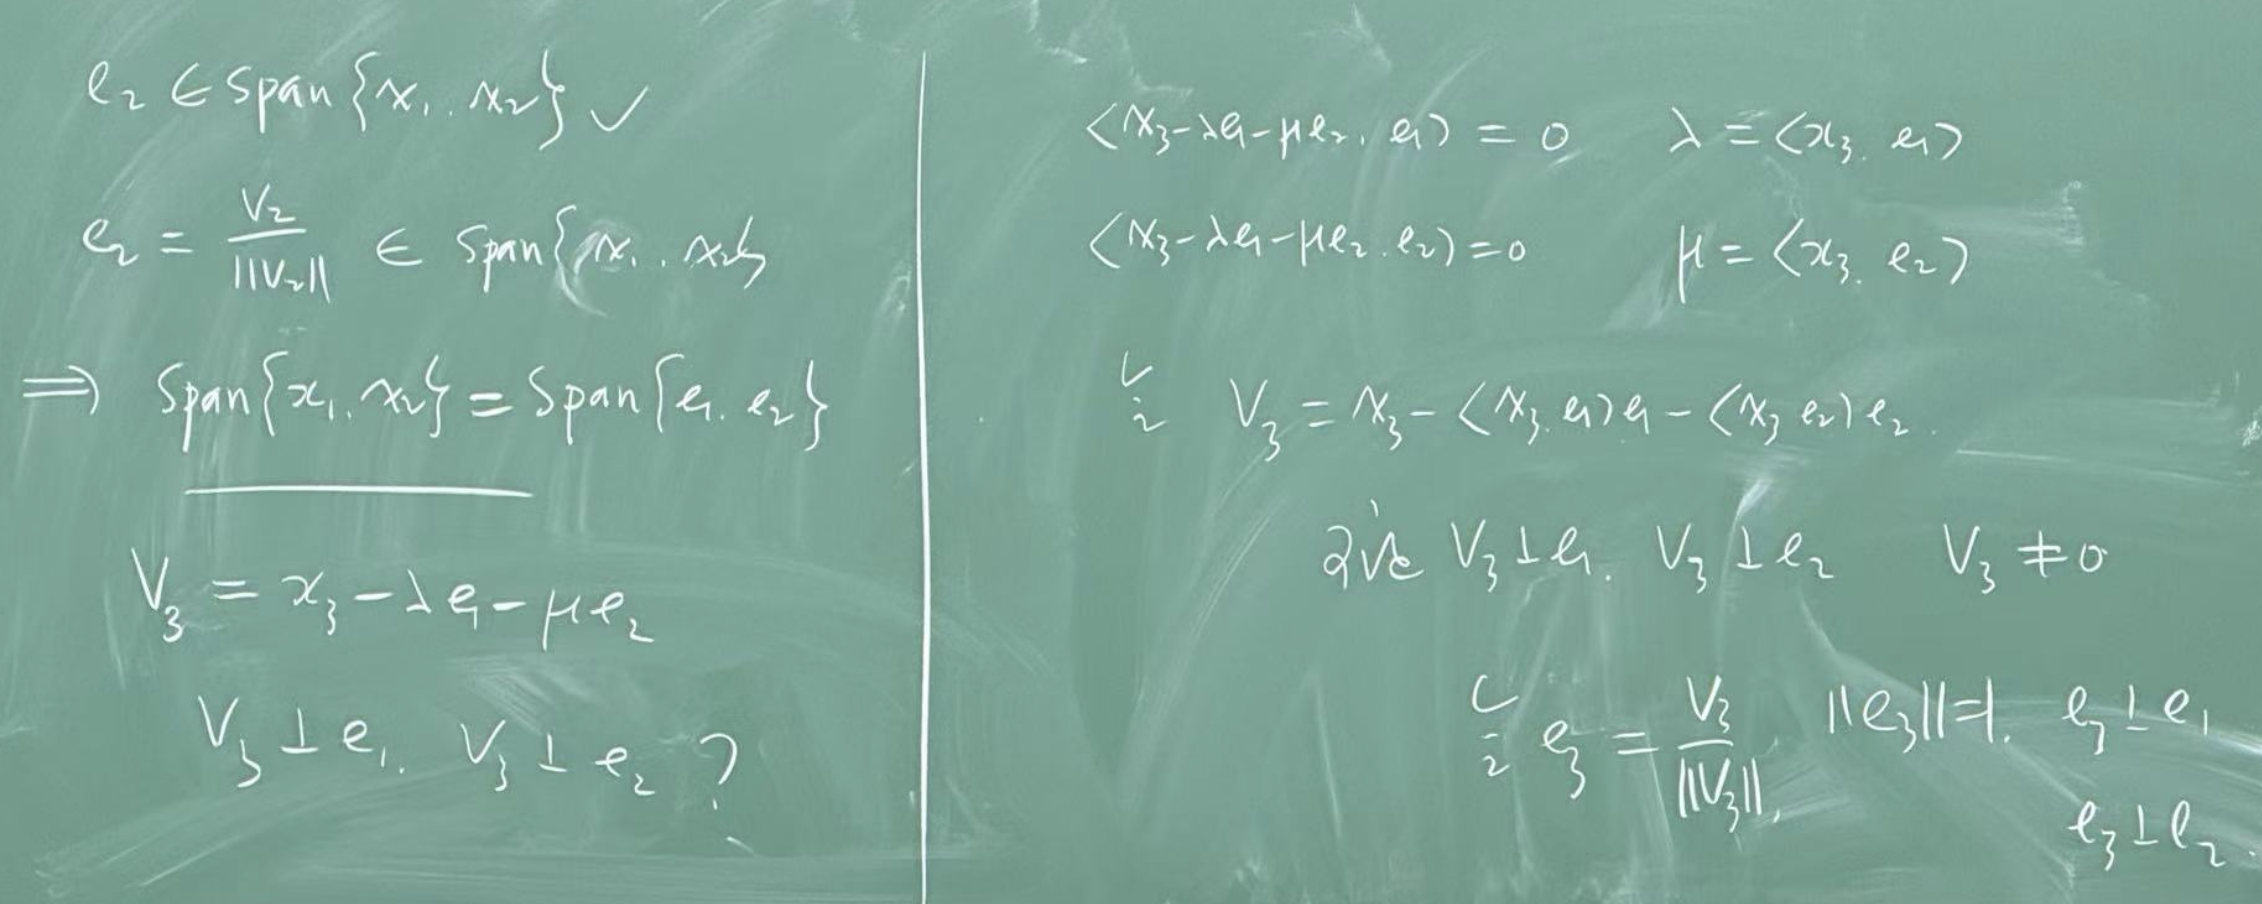 e₂ ∈ Span{x₁, x₂} ✓
e₂ = V₂/||V₂|| ∈ Span{x₁, x₂}
⟹ Span{x₁, x₂} = Span{e₁, e₂}
V₃ = x₃ - λe₁ - μe₂
V₃ ⊥ e₁, V₃ ⊥ e₂ ?
⟨x₃ - λe₁ - μe₂, e₁⟩ = 0 λ = ⟨x₃, e₁⟩
⟨x₃ - λe₁ - μe₂, e₂⟩ = 0 μ = ⟨x₃, e₂⟩
V₃ = x₃ - ⟨x₃, e₁⟩e₁ - ⟨x₃, e₂⟩e₂.
V₃ ⊥ e₁. V₃ ⊥ e₂ V₃ ≠ 0
e₃ = V₃/||V₃||, ||e₃|| = 1. e₃ ⊥ e₁
e₃ ⊥ e₂.